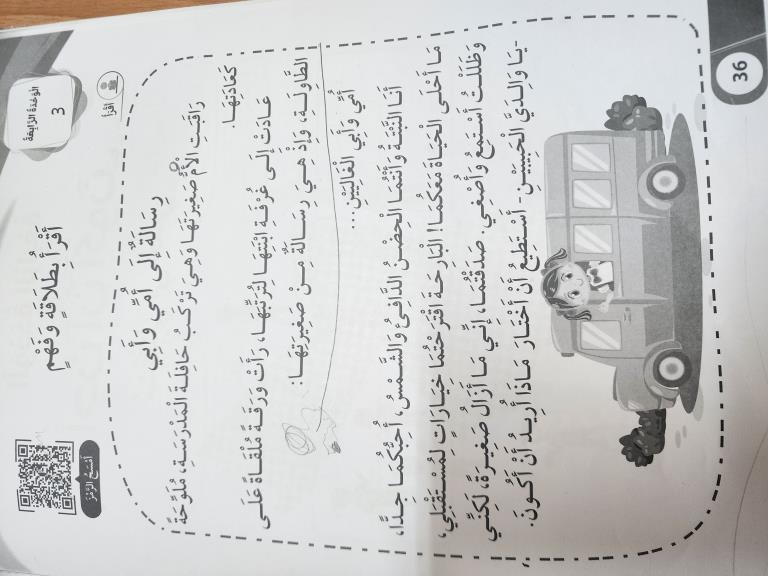 الوَحْدَةُ الرَّابِعَةُ
3
أَقْرَأُ
أَقْرَأُ بِطَلَاقَةٍ وَفَهْمٍ
اُمْسَحِ الرَّمْزَ
رِسَالَةٌ إِلَى أُمِّي وَأَبِي
رَاقَبَتِ الْأُمُّ صَغِيرَتَهَا وَهِيَ تَرْكَبُ حَافِلَةَ الْمَدْرَسَةِ، مُلَوِّحَةً
كَعَادَتِهَا.
عَادَتْ إِلَى غُرْفَةِ ابْنَتِهَا لِتُرَتِّبَهَا، رَأَتْ وَرَقَةً مُلْقَاةً عَلَى
الطَّاوِلَةِ، وَإِذْ هِيَ رِسَالَةٌ مِنْ صَغِيرَتِهَا:
أُمِّي وَأَبِي الْغَالِيَيْنِ...
أَنَا النَّبْتَةُ وَأَنْتُمَا الْحِضْنُ الدَّافِئُ وَالشَّمْسُ، أُحِبُّكُمَا جِدًّا،
مَا أَحْلَى الْحَيَاةَ مَعَكُمَا! الْبَارِحَةَ اقْتَرَحْتُمَا خِيَارَاتٍ لِمُسْتَقْبَلِي،
وَظَلَلْتُ أَسْتَمِعُ وَأُصْغِي. صَدَقْتُمَا، إِنِّي مَا أَزَالُ صَغِيرَةً، لَكِنَّنِي
-يَا وَالِدَيَّ الْحَبِيبَيْنِ- أَسْتَطِيعُ أَنْ أَخْتَارَ مَاذَا أُرِيدُ أَنْ أَكُونَ.
36